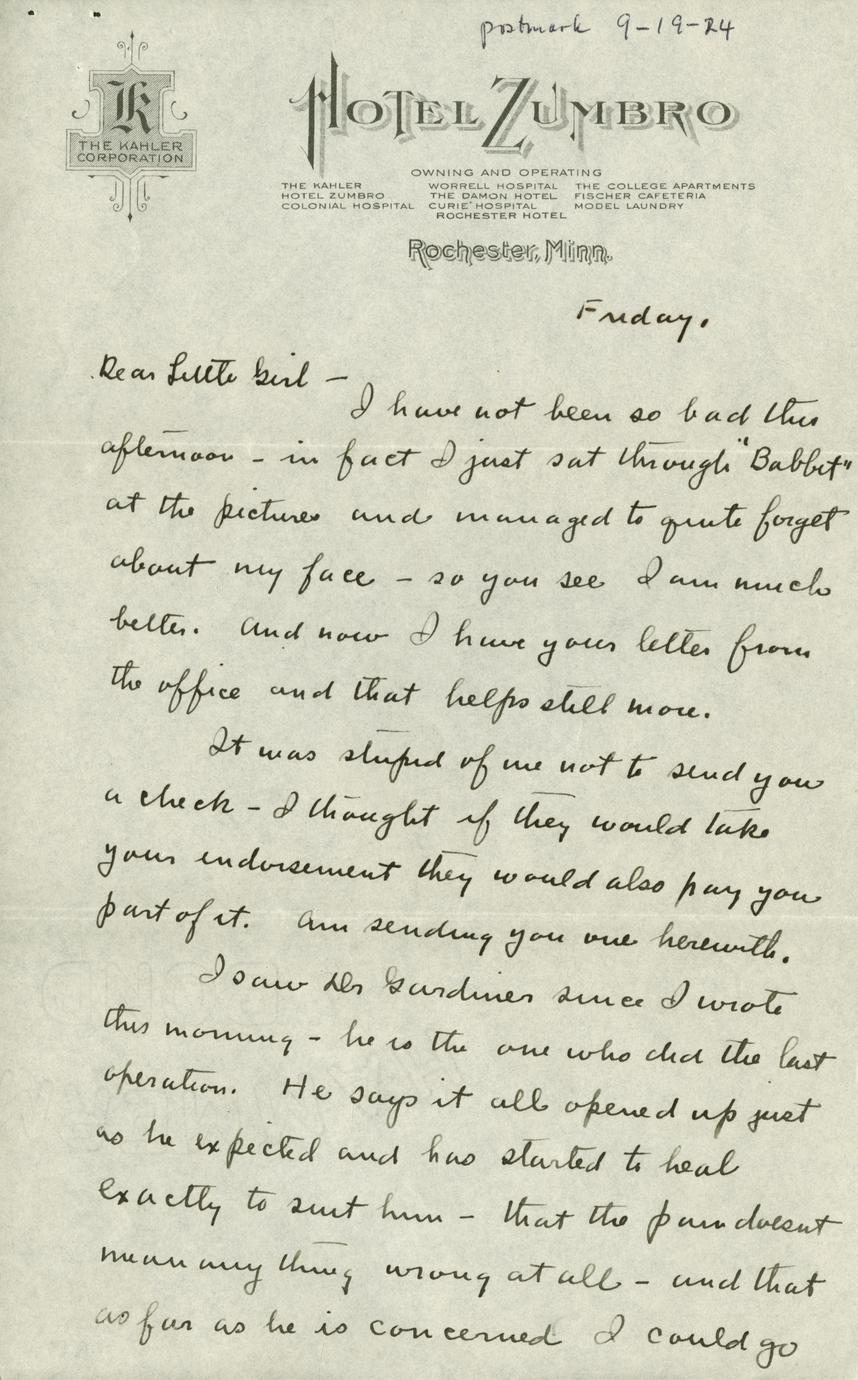 postmark 9-19-24
K
THE KAHLER
CORPORATION
HOTEL ZUMBRO
OWNING AND OPERATING
THE KAHLER WORRELL HOSPITAL THE COLLEGE APARTMENTS
HOTEL ZUMBRO THE DAMON HOTEL FISCHER CAFETERIA
COLONIAL HOSPITAL CURIE HOSPITAL MODEL LAUNDRY
ROCHESTER HOTEL
Rochester, Minn.
Friday.
Dear Little Girl —
I have not been so bad this
afternoon - in fact I just sat through "Babbit"
at the pictures and managed to quite forget
about my face - so you see I am much
better. And now I have your letter from
the office and that helps still more.
It was stupid of me not to send you
a check - I thought if they would take
your endorsement they would also pay you
part of it. Am sending you one herewith.
I saw Dr Gardiner since I wrote
this morning - he is the one who did the last
operation. He says it all opened up just
as he expected and has started to heal
exactly to suit him - that the pain doesnt
mean any thing wrong at all - and that
as far as he is concerned I could go